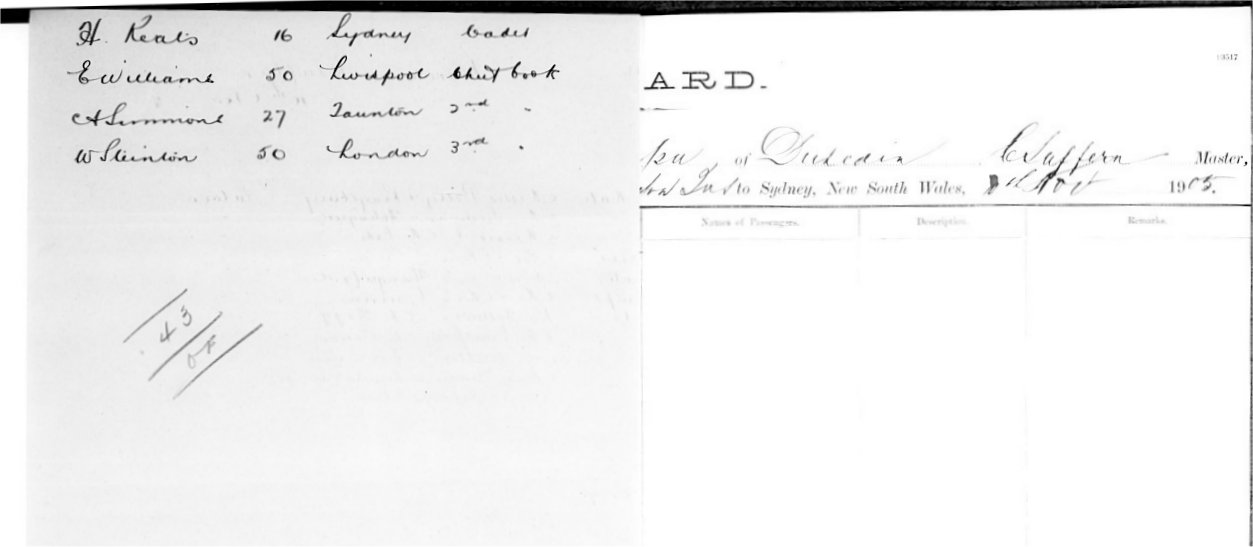 H. Keats 16 Sydney Cadet
E Williams 50 Liverpool Chief Cook
A Simmons 27 Taunton 2nd "
W Stainton 50 London 3rd "
43
OK
13517
ARD.
of Dunedin C Saffern Master,
to Sydney, New South Wales, Nov 1905.
Names of Passengers. Description. Remarks.